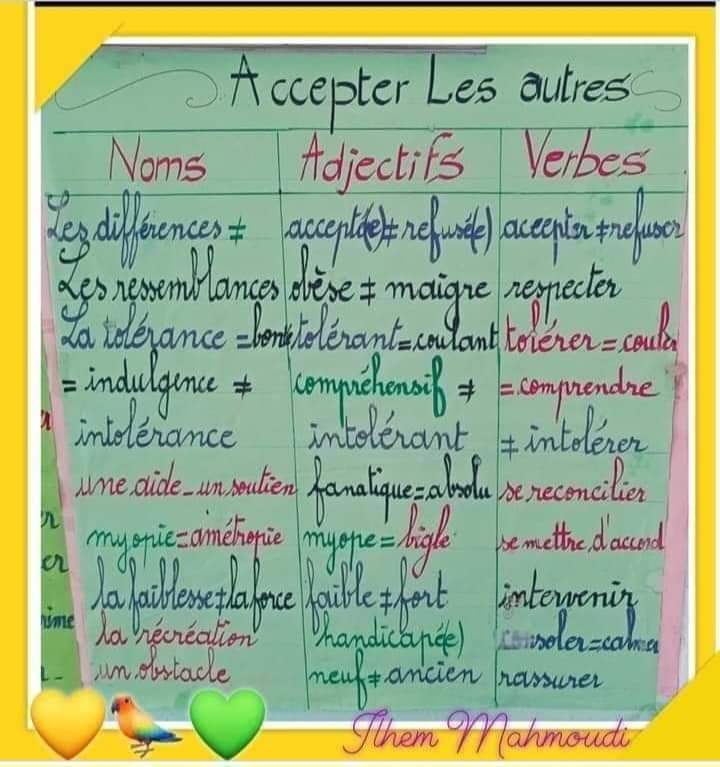 Accepter Les autres
Noms Adjectifs Verbes
Les différences ≠ accepté(e)≠refusé(e) accepter ≠refuser
Les ressemblances obèse ≠ maigre respecter
La tolérance =bonté tolérant=coulant tolérer = couler
= indulgence ≠ compréhensif ≠ =comprendre
intolérance intolérant ≠ intolérer
une aide_un soutien fanatique=absolu se reconcilier
myopie=amétropie myope = bigle se mettre d'accord
la faiblesse≠la force faible ≠ fort intervenir
la récréation handicapé(e) consoler=calmer
un obstacle neuf≠ancien rassurer
Ilhem Mahmoudi